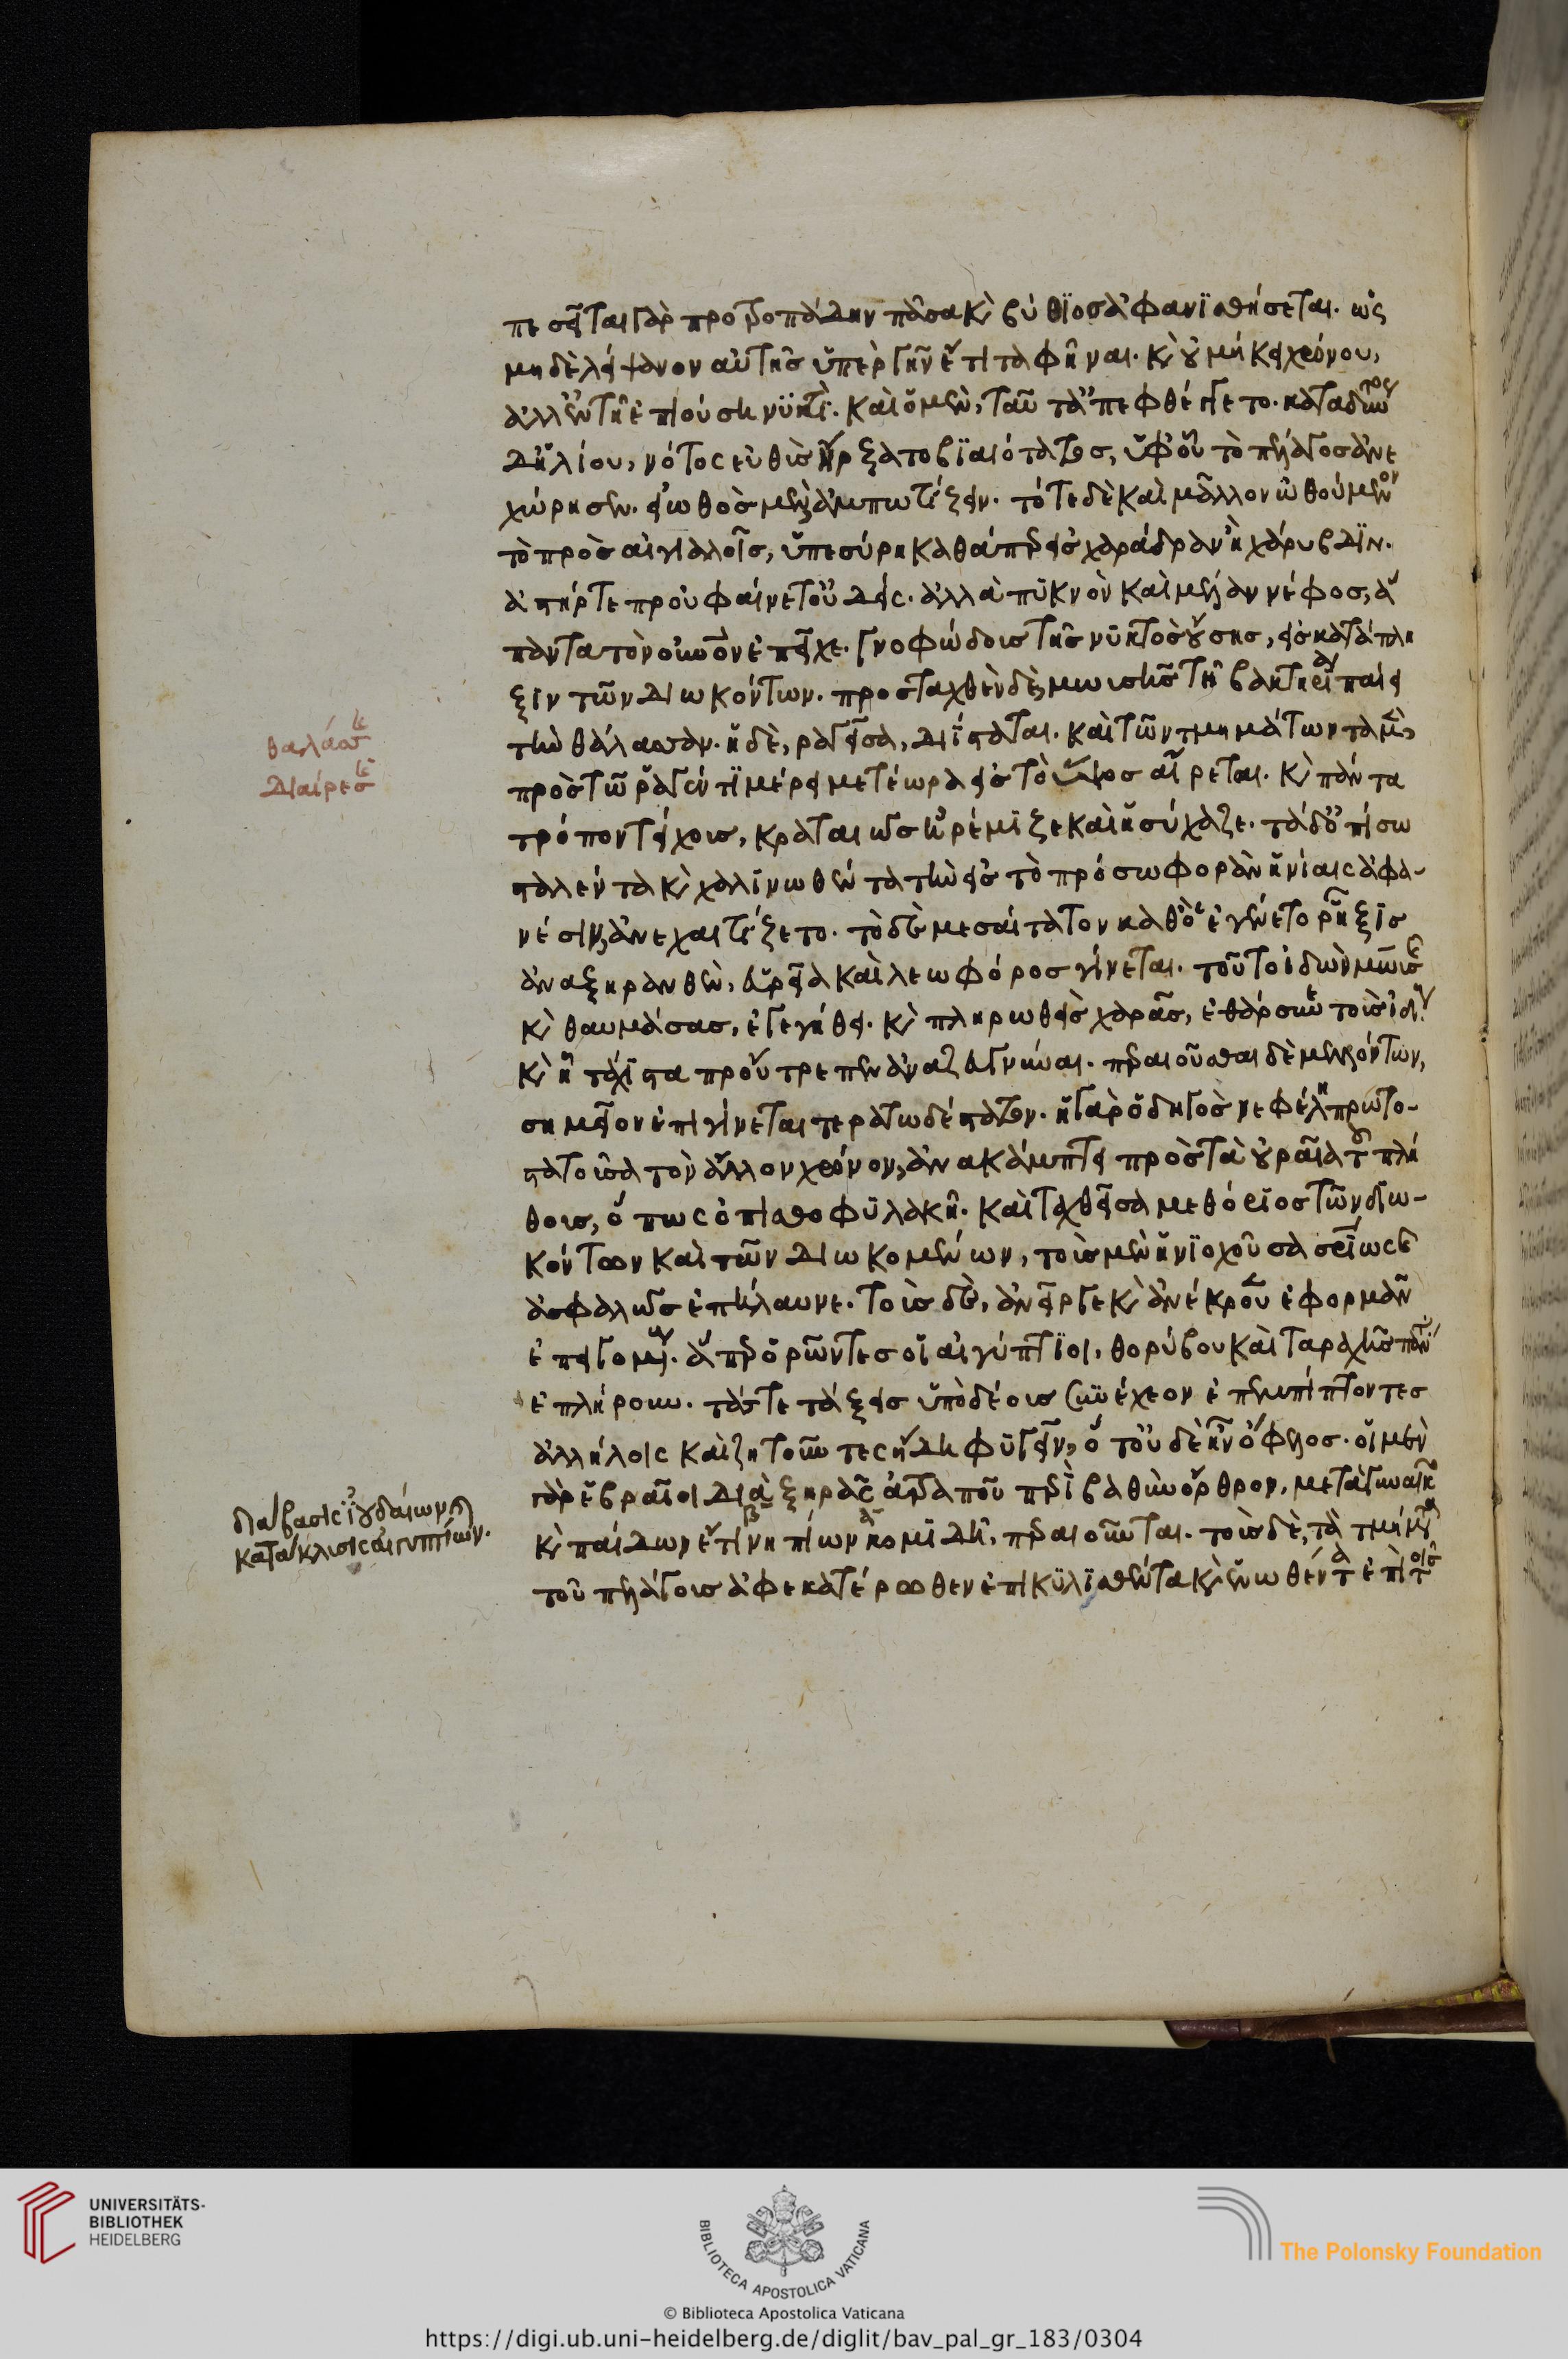 πεσεῖται γὰρ προτροπάδην πᾶσα καὶ βύθιος ἀφανισθήσεται. ὡς
μηδὲ λείψανον αὐτῆς ὑπὲρ γῆν ἔτι ταφῆναι. καὶ οὐ μήκει χρόνου,
ἀλλ' ἐν τῇ ἐπιούση νυκτί. καὶ ὁ μὲν, ταῦτα ἀπεφθέγγετο. καταδύντος
δ' ἡλίου, νότος εὐθὺς ἤρξατο βιαιότατος, ὑφ' οὗ τὸ πέλαγος ἀνε
χώρησεν. εἰωθὸς μὲν ἀμπωτίζειν. τότε δὲ καὶ μᾶλλον ὠθούμενον
τὸ πρὸς αἰγιαλοῖς, ὑπεσύρη καθάπερ εἰς χαράδραν ἢ χάρυβδιν.
ἀστήρ τε προὐφαίνετ' οὐδείς. ἀλλὰ πυκνὸν καὶ μέλαν νέφος, ἅ
παντα τὸν οὐρανὸν ἐπεῖχε. γνοφώδους τῆς νυκτὸς οὔσης, εἰς κατάπλη
ξιν τῶν διωκόντων. προσταχθὲν δὲ, μωυσῆς τῇ βακτηρίαν παίει
τὴν θάλασσαν. ἡ δὲ, ραγεῖσα, διΐσταται. καὶ τῶν τμημάτων τὰ μὲν,
πρὸς τῷ ῥαγέντι μέρει μετέωρα εἰς τὸ ὕψος αἴρεται. καὶ πάντα
τρόπον τείχους, κραταιῶς ἠρέμιζε καὶ ἡσύχαζε. τὰ δ' ὀπίσω
σταλέντα καὶ χαλινωθέντα τὴν εἰς τὸ πρόσω φορὰν ἡνίαις ἀφα-
νέσιν, ἀνεχαιτίζετο. τὸ δὲ μεσαίτατον καθ' ὃ ἐγένετο ῥῆξις
ἀναξηρανθὲν, εὐρεῖα καὶ λεωφόρος γίνεται. τοῦτο ἰδὼν μωυσῆς
καὶ θαυμάσας, ἐγεγήθει. καὶ πληρωθεὶς χαρᾶς, ἐθάρσυνε τοὺς ἰδίους
καὶ ᾗ τάχιστα προὔτρεπεν ἀναζευγνύναι. περαιοῦσθαι δὲ μελλόντων,
σημεῖον ἐπιγίνεται τερατωδέστατον. ἡ γὰρ ὁδηγὸς νεφέλη πρωτο-
στατοῦσα τὸν ἄλλον χρόνον, ἀνακάμπτει πρὸς τὰ οὐραῖα τοῦ πλή
θους, ὅπως ὀπισθοφυλακῇ. καὶ ταχθεῖσα μεθόριος τῶν διω-
κόντων καὶ τῶν διωκομένων, τοὺς μὲν ἡνιοχοῦσα
ἀσφαλῶς ἐπήλαυνε. τοὺς δὲ, ἀνεῖργε καὶ ἀνέκρουεν ἐφορμᾶν
ἐπειγομένους. ἅπερ ὁρῶντες οἱ αἰγύπτιοι, θορύβου καὶ ταραχῆς πάντα
ἐπλήρουν. τάς τε τάξεις ὑπὸ δέους συνέχεον ἐπεμπίπτοντες
ἀλλήλοις καὶ ζητοῦντες ἤδη φυγεῖν, ὅτ' οὐδὲν ἦν ὄφελος. οἱ μὲν
γὰρ ἑβραῖοι διὰ ξηρᾶς ἀτραποῦ περὶ βαθὺν ὄρθρον, μετὰ γυναικῶν
καὶ παίδων ἔτι νηπίων κομιδῇ, περαιοῦνται. τοὺς δὲ, τὰ τμήματα
τοῦ πελάγους ἀφ' ἑκατέρωθεν ἐπικυλισθέντα καὶ ἑνωθέντα ἐπὶ τοῖς
θαλάσσης
διαίρεσις
διάβασις ἰουδαίων καὶ
κατάκλυσις αἰγυπτίων.
UNIVERSITÄTS-
BIBLIOTHEK
HEIDELBERG
BIBLIOTECA APOSTOLICA VATICANA
The Polonsky Foundation
© Biblioteca Apostolica Vaticana
https://digi.ub.uni-heidelberg.de/diglit/bav_pal_gr_183/0304